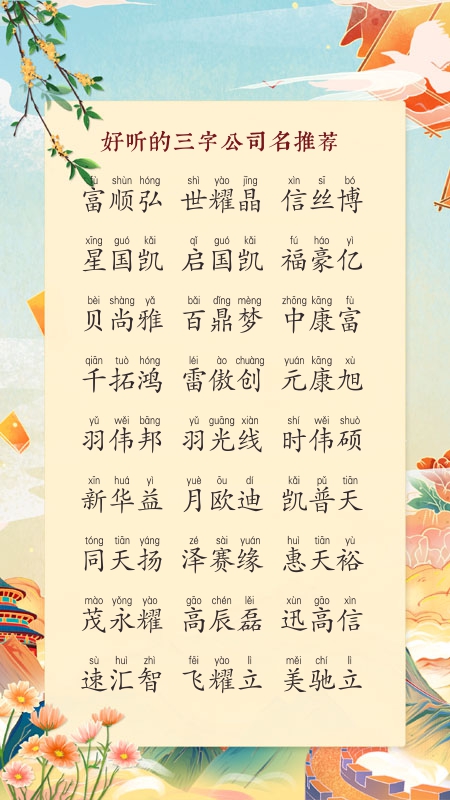 好听的三字公司名推荐
fù shùn hóng shì yào jīng xìn sī bó
富顺弘 世耀晶 信丝博
xīng guó kǎi qǐ guó kǎi fú háo yì
星国凯 启国凯 福豪亿
bèi shàng yǎ bǎi dǐng mèng zhōng kāng fù
贝尚雅 百鼎梦 中康富
qiān tuò hóng léi ào chuàng yuán kāng xù
千拓鸿 雷傲创 元康旭
yǔ wěi bāng yǔ guāng xiàn shí wěi shuò
羽伟邦 羽光线 时伟硕
xīn huá yì yuè ōu dí kǎi pǔ tiān
新华益 月欧迪 凯普天
tóng tiān yáng zé sài yuán huì tiān yù
同天扬 泽赛缘 惠天裕
mào yǒng yào gāo chén lěi xùn gāo xìn
茂永耀 高辰磊 迅高信
sù huì zhì fēi yào lì měi chí lì
速汇智 飞耀立 美驰立